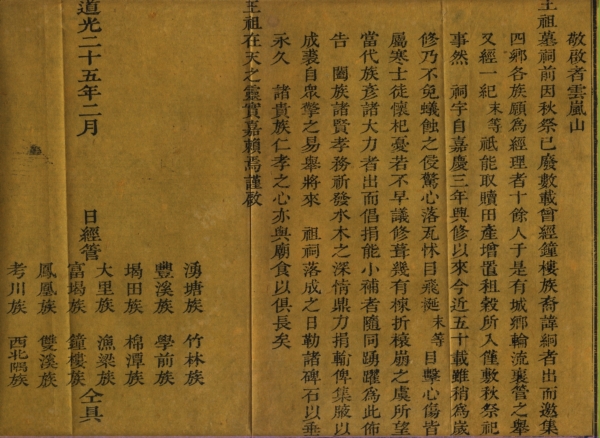 敬啟者雲嵐山
王祖墓祠前因秋祭已廢數載曾經鐘樓族裔諱絅者出而邀集
四鄉各族願為經理者十餘人于是有城鄉輪流襄管之舉
又經一紀末等祇能取贖田產增置租穀所入僅敷秋祭祀
事然 祠宇自嘉慶三年興修以來今近五十載雖稍為歲
修乃不免蟻蝕之侵驚心落瓦怵目飛梴末等目擊心傷皆
屬寒士徒懷杞憂若不早議修葺幾有棟折榱崩之虞所望
當代族彥諸大力者出而倡捐能小補者隨同踴躍為此佈
告 闔族諸賢孝務祈發水木之深情鼎力捐輸俾集腋以
成裘自眾擎之易舉將來 祖祠落成之日勒諸碑石以垂
永久 諸貴族仁孝之心亦與廟食以俱長矣
王祖在天之靈實嘉賴焉謹啟
湧塘族 竹林族
豐溪族 學前族
堨田族 棉潭族
大里族 漁梁族
日經管 富堨族 鐘樓族 仝具
鳳凰族 雙溪族
考川族 西北隅族
道光二十五年二月